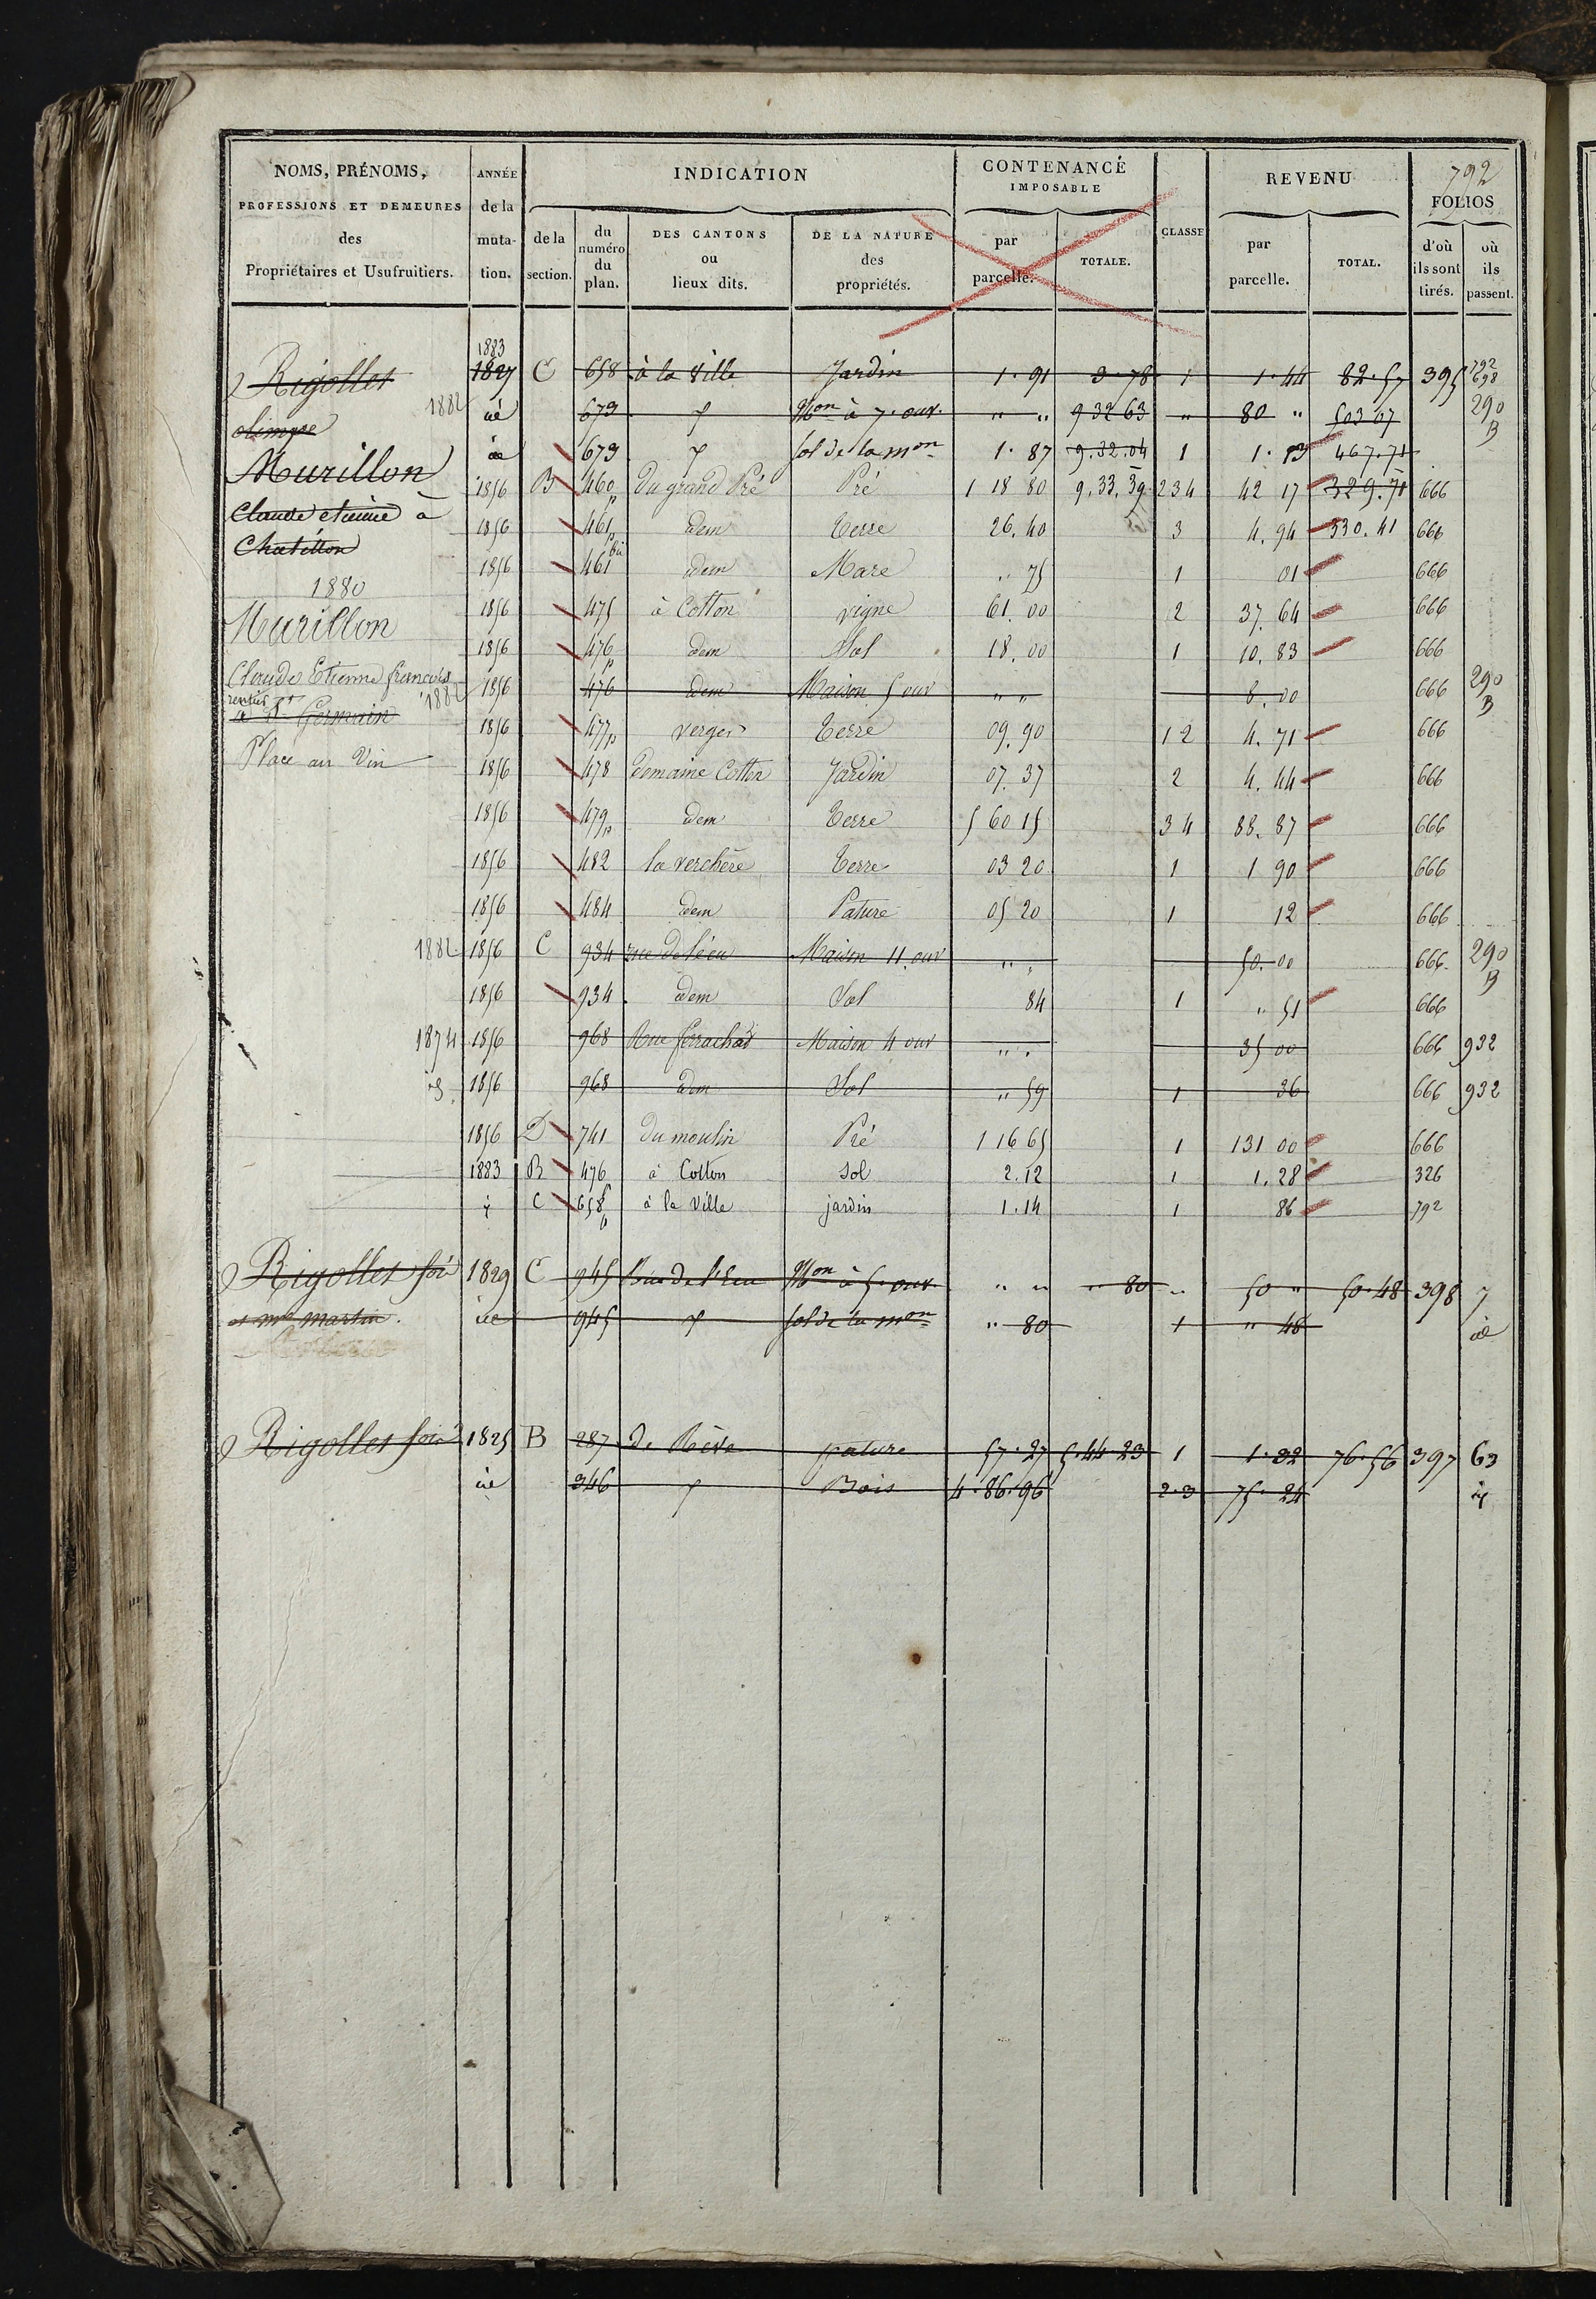 792
NOMS, PRÉNOMS, PROFESSIONS ET DEMEURES des Propriétaires et Usufruitiers.
ANNÉE de la muta- tion.
INDICATION
de la section.
du numéro du plan.
DES CANTONS ou lieux dits.
DE LA NATURE des propriétés.
CONTENANCE IMPOSABLE
par parcelle.
TOTALE.
CLASSE
REVENU
par parcelle.
TOTAL.
FOLIOS
d'où ils sont tirés.
où ils passent.
1883
Rigollet 1827 C 658 à la ville Jardin 1. 91 3. 78 1 1. 44 82. 57 395 792 698
olimpe 1882 id 673 Mon à 7. ouv. " " 9 32 63 " 80 " 503 07 290 B
id 673 sol de la mon 1. 87 9. 32. 04 1 1. 13 467. 71
Murillon 1856 B 460p du grand Pré Pré 1 18 80 9. 33. 39 2 3 4 42 17 329. 71 666
Claude etienne à 1856 461p idem Terre 26. 40 3 4. 94 330. 41 666
Chatillon 1856 461 bis idem Mare " 75 1 01 666
1880
Murillon 1856 475 à Cotton vigne 61. 00 2 37. 64 666
1856 476p idem Sol 18. 00 1 10. 83 666
Claude Etienne françois 1882 1856 476 idem Maison 5 ouv " " 8. 00 666 290 B
rentier
à St Germain 1856 477p verger Terre 09. 90 1 2 4. 71 666
Place au Vin 1856 478 domaine Cotton Jardin 07. 37 2 4. 44 666
1856 479p idem Terre 5 60 15 3 4 88. 87 666
1856 482 la verchère Terre 03 20 1 1 90 666
1856 484 idem Pature 05 20 1 12 666
1882 1856 C 934 rue de l'écu Maison 11 ouv " " 50. 00 666 290 B
1856 934 idem Sol 84 1 " 51 666
1874 1856 968 Rue Maison 4 ouv " " 35 00 666 932
1856 968 idem Sol " 59 1 36 666 932
1856 D 741 du moulin Pré 1 16 65 1 131 00 666
1883 B 476p à Cotton sol 2. 12 1 1. 28 326
C 658p à la ville jardin 1. 14 1 86 792
Rigollet 1829 C 945 Rue de l'Ecu Mon à 5. ouv. " " " 80 " 50 " 50. 48 398 7
et martin. id 945 sol de la mon " 80 1 " 48 id
Rigollet 1825 B 287 de Rève pature 57. 27 5. 44 23 1 1. 32 76. 56 397 63
id 346 Bois 4. 86. 96 2. 3 75. 24